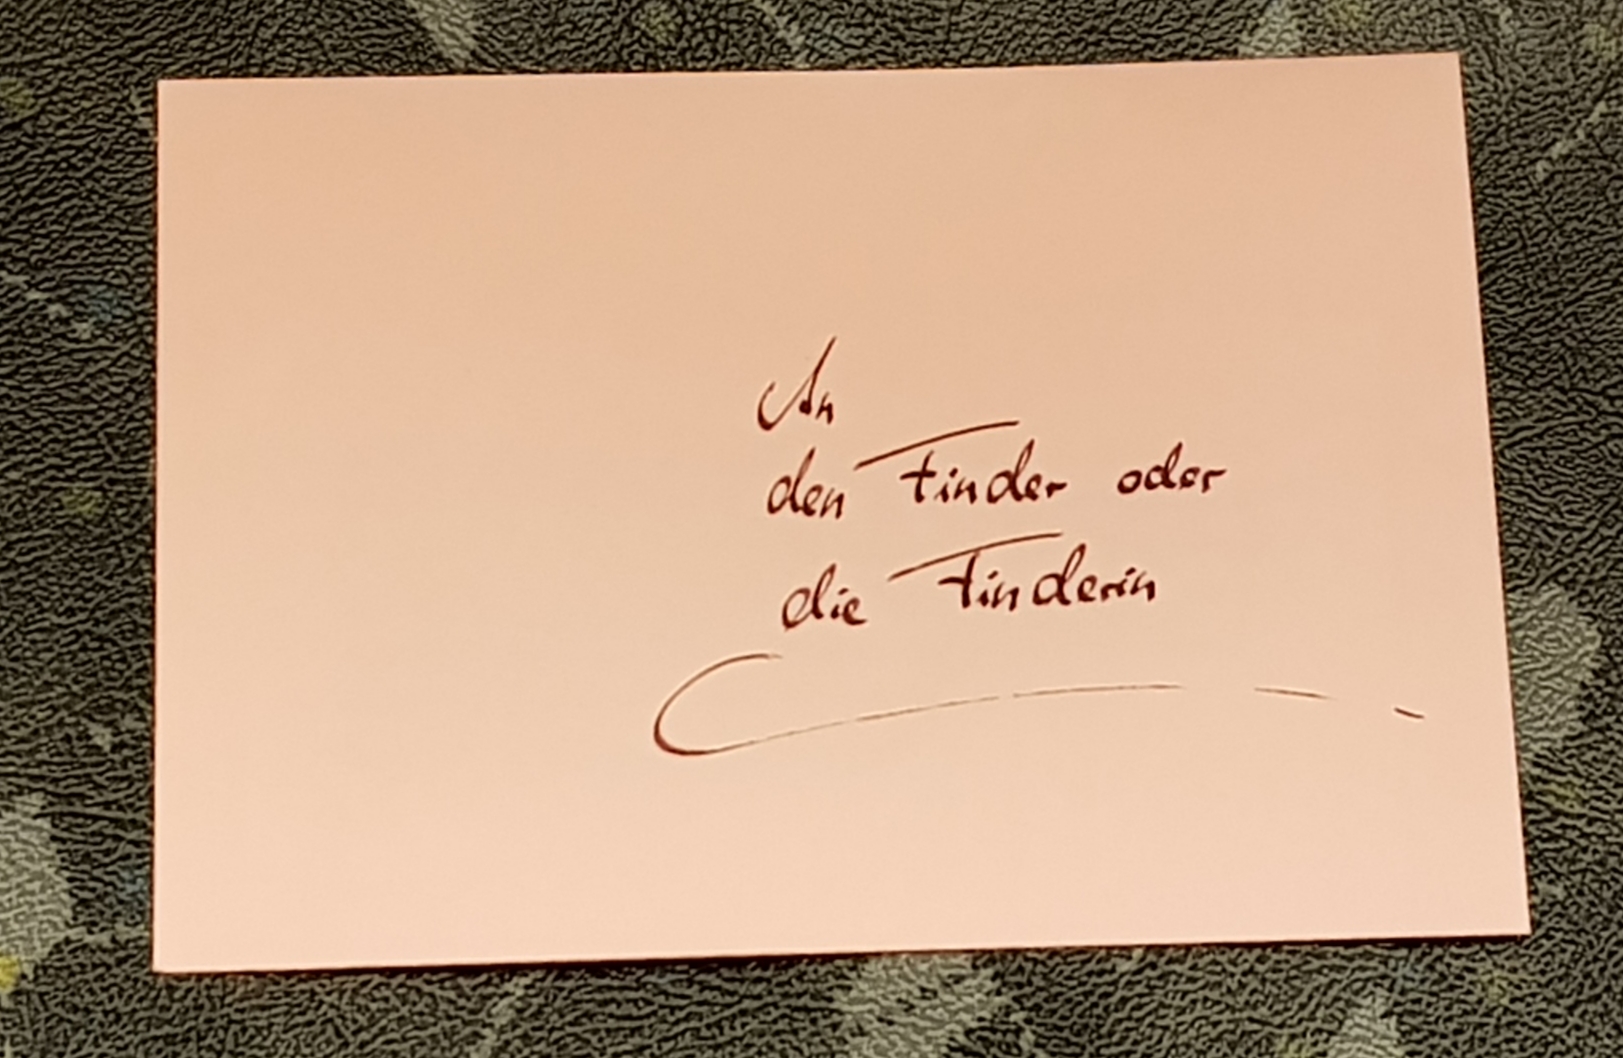 An
den Finder oder
die Finderin